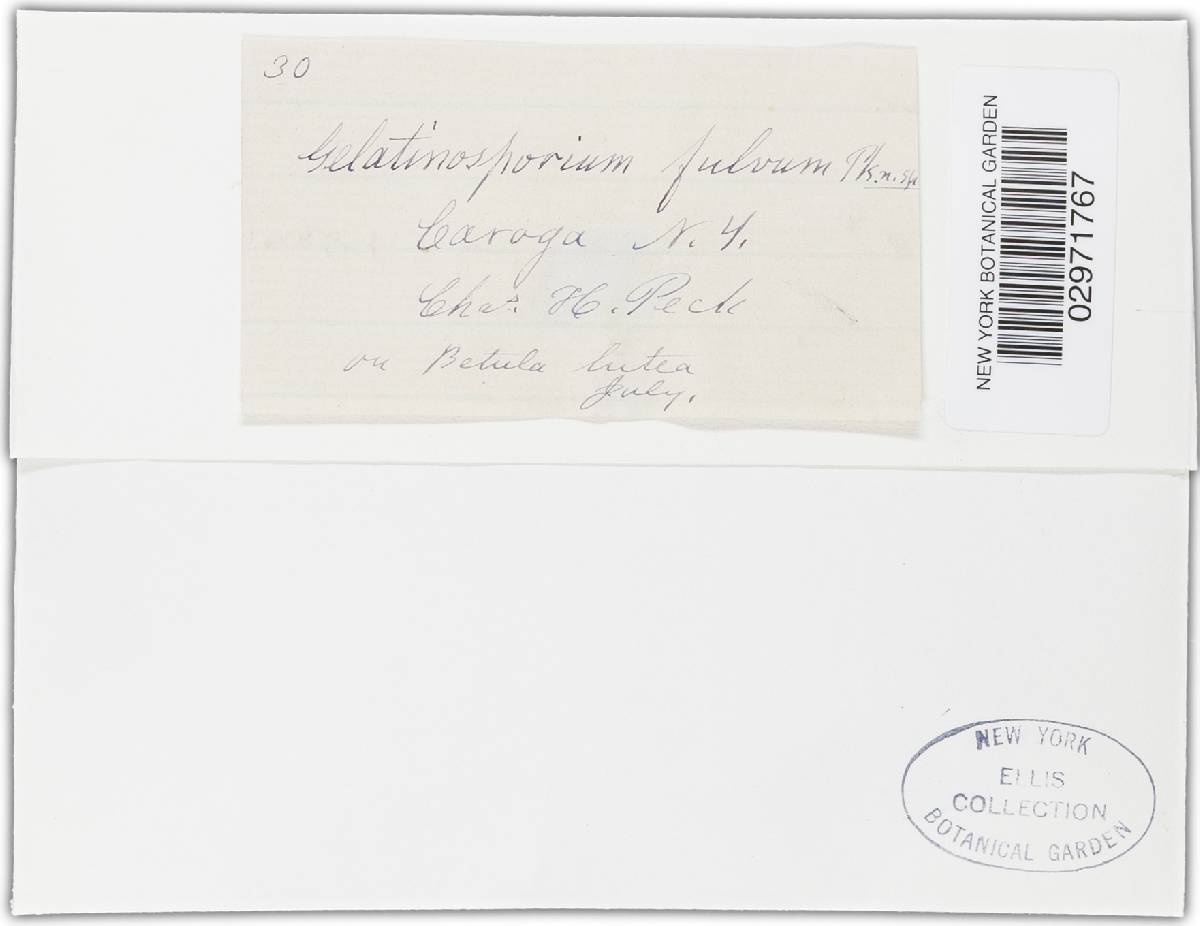 30
Gelatinosporium fulvum Pk. n. sp.
Caroga N. Y.
Chas. H. Peck
on Betula lutea
July.
NEW YORK BOTANICAL GARDEN
02971767
NEW YORK
ELLIS
COLLECTION
BOTANICAL GARDEN